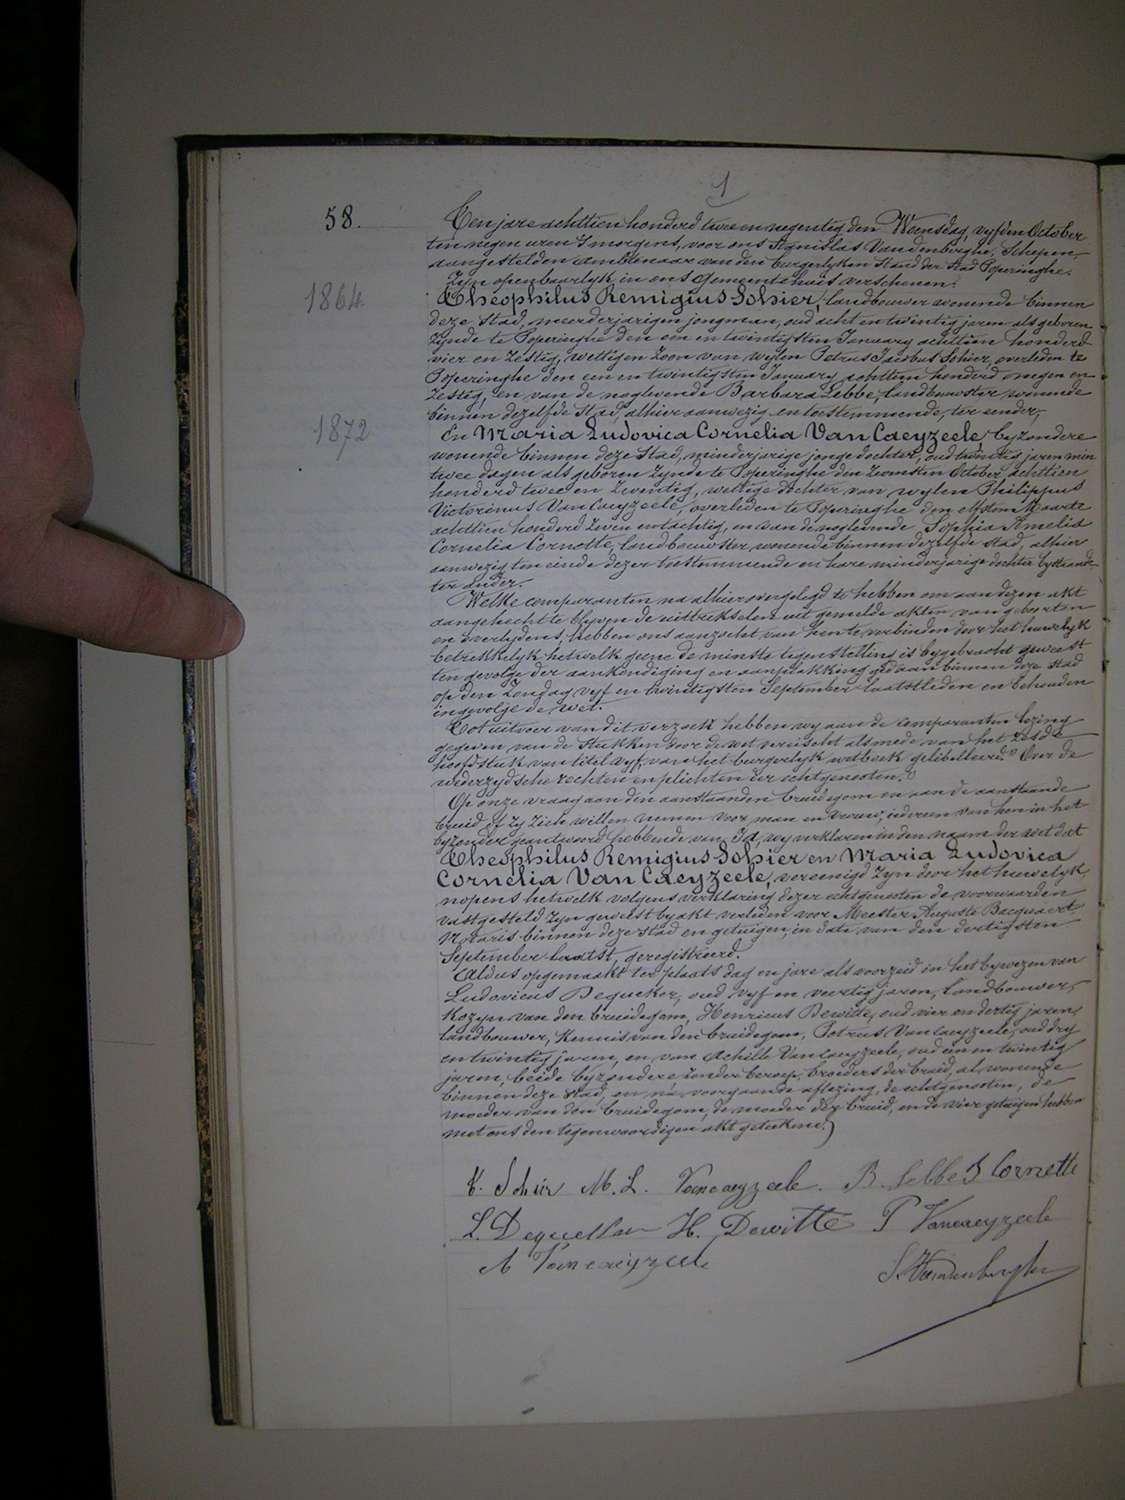 1
58.
Ten jare achttien honderd twee en negentig den Woensdag vyfden October
ten negen uren 's morgens, voor ons Stanislas Vandenberghe, Schepen,
aangestelden ambtenaar van den burgerlyken stand der stad Poperinghe.
Zyn openbaarlyk in ons Gemeentehuis verschenen:
1864
Theophilus Remigius Sohier, landbouwer wonende binnen
deze stad, meerderjarigen jongman, oud acht en twintig jaren als geboren
zynde te Poperinghe den een en twintigsten January achttien honderd
vier en zestig, wettigen zoon van wylen Petrus Jacobus Sohier, overleden te
Poperinghe den een en twintigsten January achttien honderd negen en
zestig, en van de noglevende Barbara Lebbe, landbouwster wonende
binnen dezelfde stad, alhier aanwezig en toestemmende, ter eender,
1872
En Maria Ludovica Cornelia Van Caeyzeele, byzondere
wonende binnen deze stad, minderjarige jonge dochter, oud twintig jaren min
twee dagen als geboren zynde te Poperinghe den zevensten October achttien
honderd twee en zeventig, wettige dochter van wylen Philippus
Victorinus Van Caeyzeele, overleden te Poperinghe den elfsten Maarte
achttien honderd zeven en tachtig, en van de noglevende Sophia Amelia
Cornelia Cornette, landbouwster, wonende binnen dezelfde stad, alhier
aanwezig ten einde dezer toestemmende en hare minderjarige dochter bystaande
ter ander.
Welke comparanten na alhier overgelegd te hebben om aan dezen akt
aangehecht te blyven de uittrekselen uit gemelde akten van geboorten
en overlydens, hebben ons aanzocht van hen te verbinden door het huwelyk
betrekkelyk hetwelk geene de minste tegenstelling is bygebracht geweest
ten gevolge der aankondiging en aanplakking gedaan binnen deze stad
op den Zondag vyf en twintigsten September laatstleden en behouden
ingevolge de wet.
Tot uitvoer van dit verzoek hebben wy aan de comparanten lezing
gegeven van de stukken door de wet vereischt alsmede van het zesde
hoofdstuk van titel vyf van het burgerlyk wetboek gelibelleerd: "Over de
wederzydsche rechten en plichten der echtgenooten."
Op onze vraag aan den aanstaanden bruidegom en aan de aanstaande
bruid of zy zich willen nemen voor man en vrouw, iedereen van hen in het
byzonder geantwoord hebbende van Ja, wy verklaren in den naam der wet dat
Theophilus Remigius Sohier en Maria Ludovica
Cornelia Van Caeyzeele, vereenigd zyn door het huwelyk,
nopens hetwelk volgens verklaring dezer echtgenooten de voorwaarden
vastgesteld zyn geweest by akt verleden voor Meester Auguste Bacquaert
Notaris binnen deze stad en getuigen, in date van den dertigsten
September laatst, geregistreerd.
Aldus opgemaakt ter plaats dag en jare als voorzeid in het bywezen van
Ludovicus Dequeker, oud vyf en veertig jaren, landbouwer,
kozyn van den bruidegom, Henricus Dewitte, oud vier en dertig jaren,
landbouwer, kennis van den bruidegom, Petrus Van Caeyzeele, oud dry
en twintig jaren, en van Achille Van Caeyzeele, oud een en twintig
jaren, beide byzondere zonder beroep, broeders der bruid, al wonende
binnen deze stad, en na voorgaande aflezing, de echtgenooten, de
moeder van den bruidegom, de moeder der bruid, en de vier getuigen hebben
met ons den tegenwoordigen akt geteekend.
T. Sohier M. L. Vancaeyzeele. B. Lebbe S Cornette
L. Dequeker H. Dewitte P Vancaeyzeele
A Vancaeyzeele
S. Vandenberghe